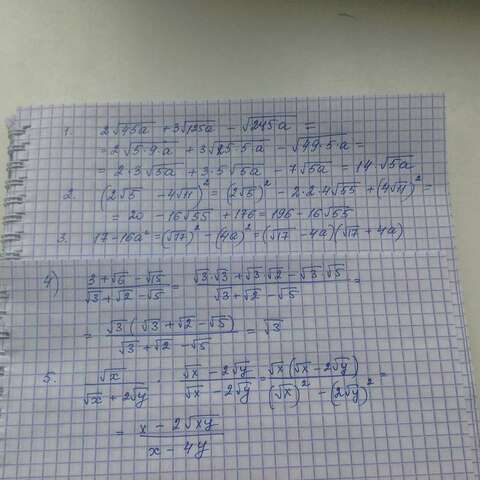 1. 2√45a + 3√125a - √245a =
= 2√5·9a + 3√25·5a - √49·5a =
= 2·3√5a + 3·5√5a - 7√5a = 14√5a
2. (2√5 - 4√11)² = (2√5)² - 2·2·4√55 + (4√11)² =
= 20 - 16√55 + 176 = 196 - 16√55
3. 17 - 16a² = (√17)² - (4a)² = (√17 - 4a)(√17 + 4a)
4) (3 + √6 - √15)/(√3 + √2 - √5) = (√3·√3 + √3·√2 - √3·√5)/(√3 + √2 - √5) =
= √3(√3 + √2 - √5)/(√3 + √2 - √5) = √3
5. √x/(√x + 2√y) · (√x - 2√y)/(√x - 2√y) = √x(√x - 2√y)/((√x)² - (2√y)²) =
= (x - 2√xy)/(x - 4y)